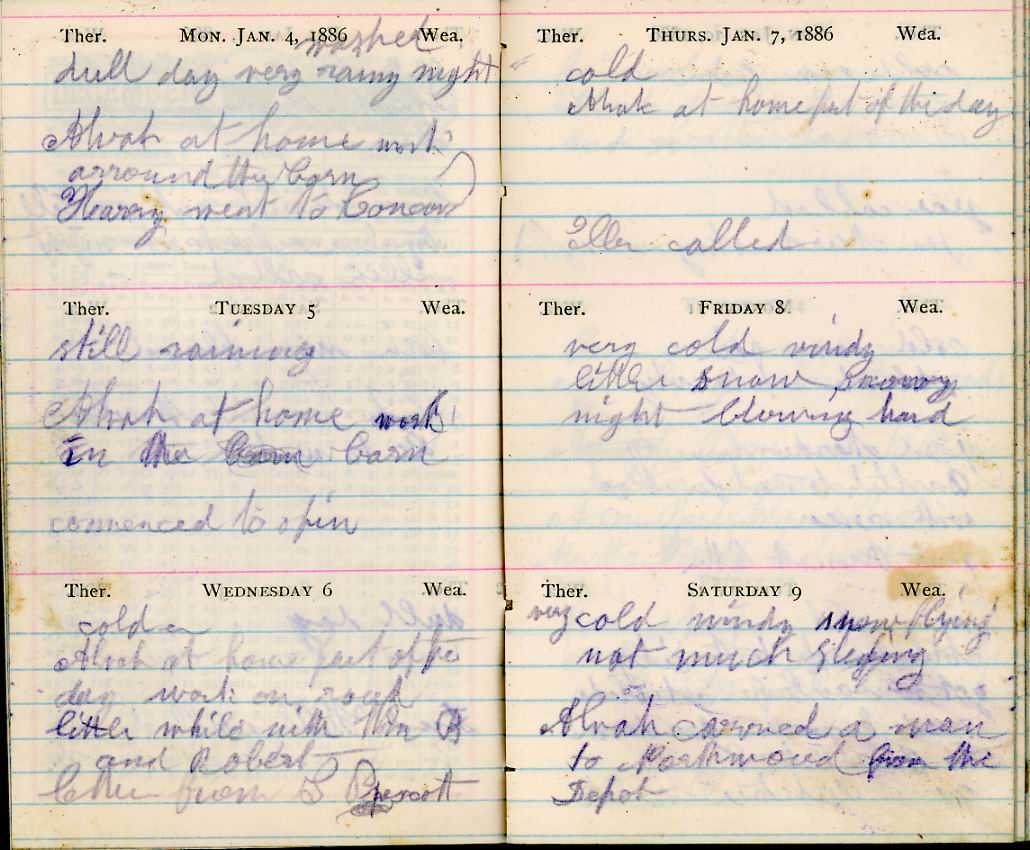 Ther. MON. JAN. 4, 1886 Wea.
washed
dull day very rainy night
Alvah at home work
arround the barn
Hearey went to Concord
Ther. TUESDAY 5 Wea.
still raining
Alvah at home work
in the barn
comenced to spin
Ther. WEDNESDAY 6 Wea.
colder
Alvah at home part of the
day work on road
little while with B
and Robert
letter from S Prescott
Ther. THURS. JAN. 7, 1886 Wea.
cold
Alvah at home part of the day
Ella called
Ther. FRIDAY 8 Wea.
very cold windy
little snow snowy
night blowing hard
Ther. SATURDAY 9 Wea.
very cold windy snow flying
not much sleging
Alvah carried a man
to Northwood from the
Depot